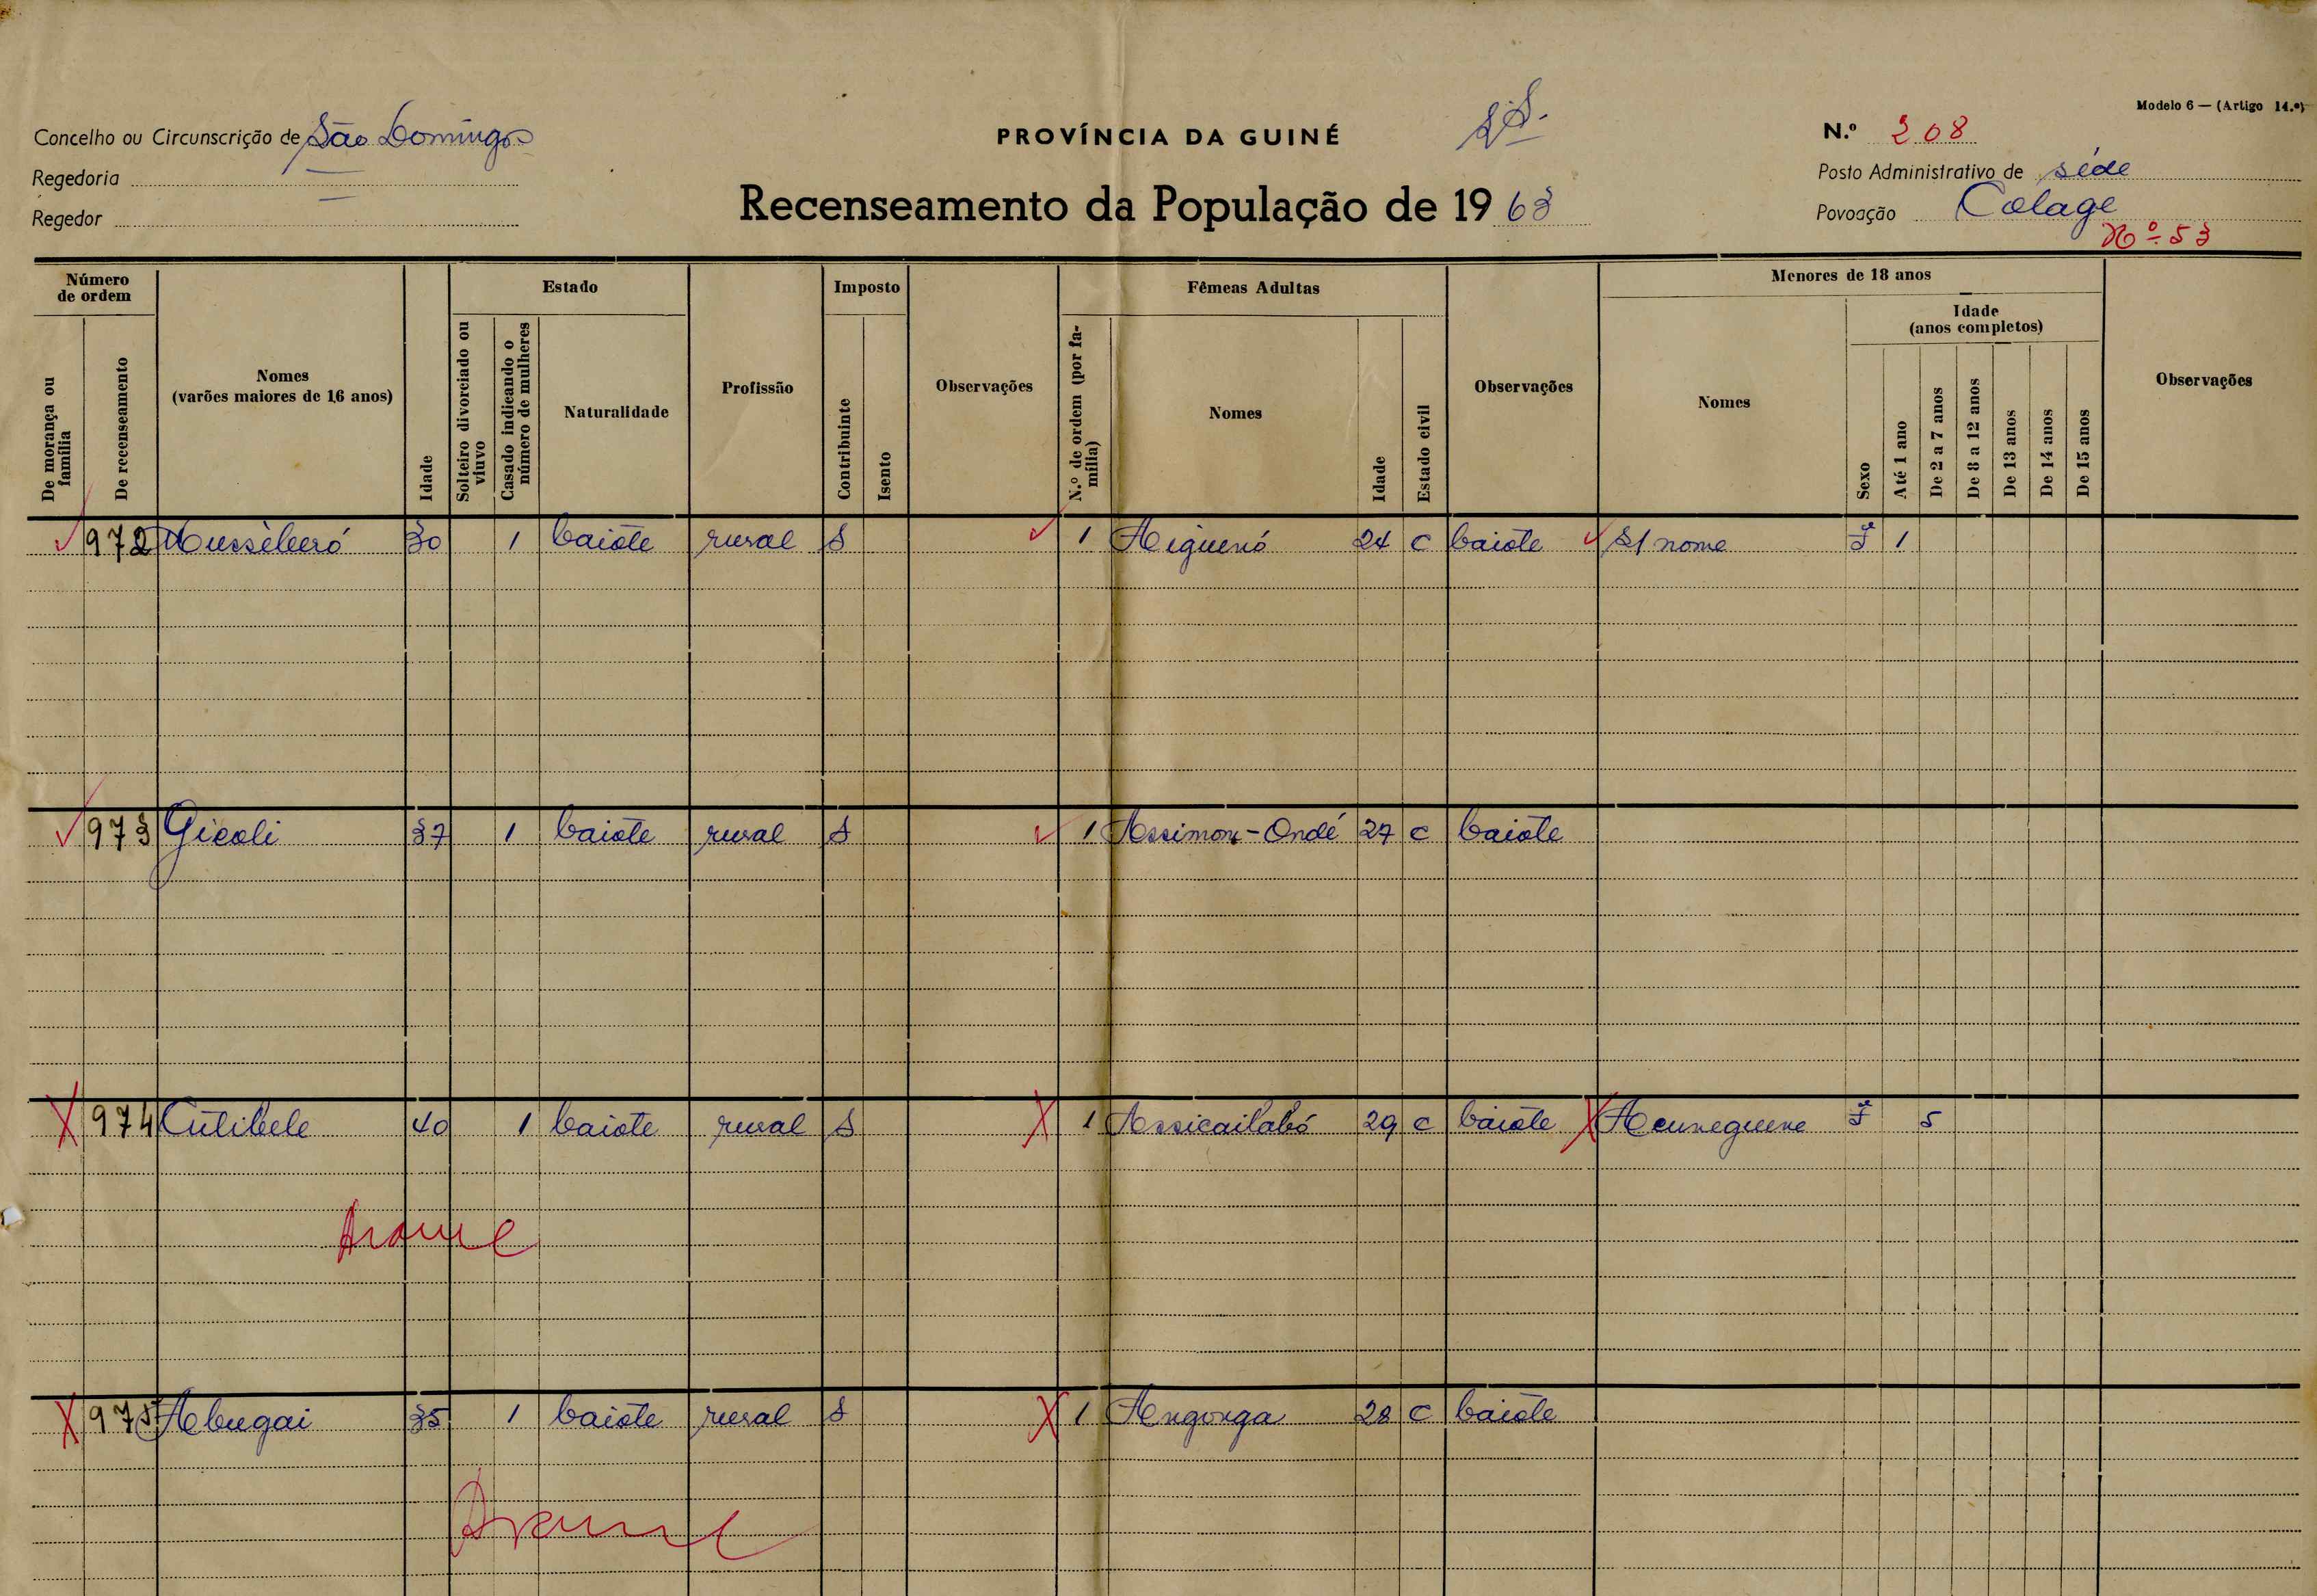 Modelo 6 — (Artigo 14.º)
Concelho ou Circunscrição de São Domingos
PROVÍNCIA DA GUINÉ
N.º 208
Regedoria —
Posto Administrativo de séde
Regedor —
Recenseamento da População de 1963
Povoação Colage
Nº 53
Número de ordem
De morança ou família
De recenseamento
Nomes
(varões maiores de 16 anos)
Idade
Estado
Solteiro divorciado ou viuvo
Casado indicando o número de mulheres
Naturalidade
Profissão
Imposto
Contribuinte
Isento
Observações
Fêmeas Adultas
N.º de ordem (por família)
Nomes
Idade
Estado civil
Observações
Menores de 18 anos
Nomes
Sexo
Idade
(anos completos)
Até 1 ano
De 2 a 7 anos
De 8 a 12 anos
De 13 anos
De 14 anos
De 15 anos
Observações
972 30 1 baiote rural S 1 Aiguenó 24 c baiote S/ nome F 1
973 Gicoli 37 1 baiote rural S 1 Assimon-Ondé 27 c baiote
974 Cutibele 40 1 baiote rural S 1 Assicailabó 29 c baiote Acuneguene F 5
Arame
975 Abugai 35 1 baiote rural S 1 Angonga 28 c baiote
Arame